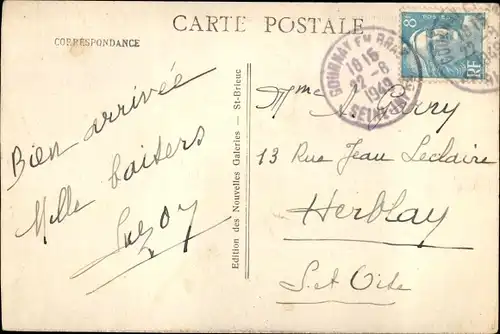 CARTE POSTALE
CORRESPONDANCE
Bien arrivée
Mille baisers
Suzon
Edition des Nouvelles Galeries — St-Brieuc
GOURNAY EN BRAY
18 15
22 - 8
1949
SEINE INFRE
8F
RF
Mme
13 Rue Jean Leclaire
Herblay
S. et Oise